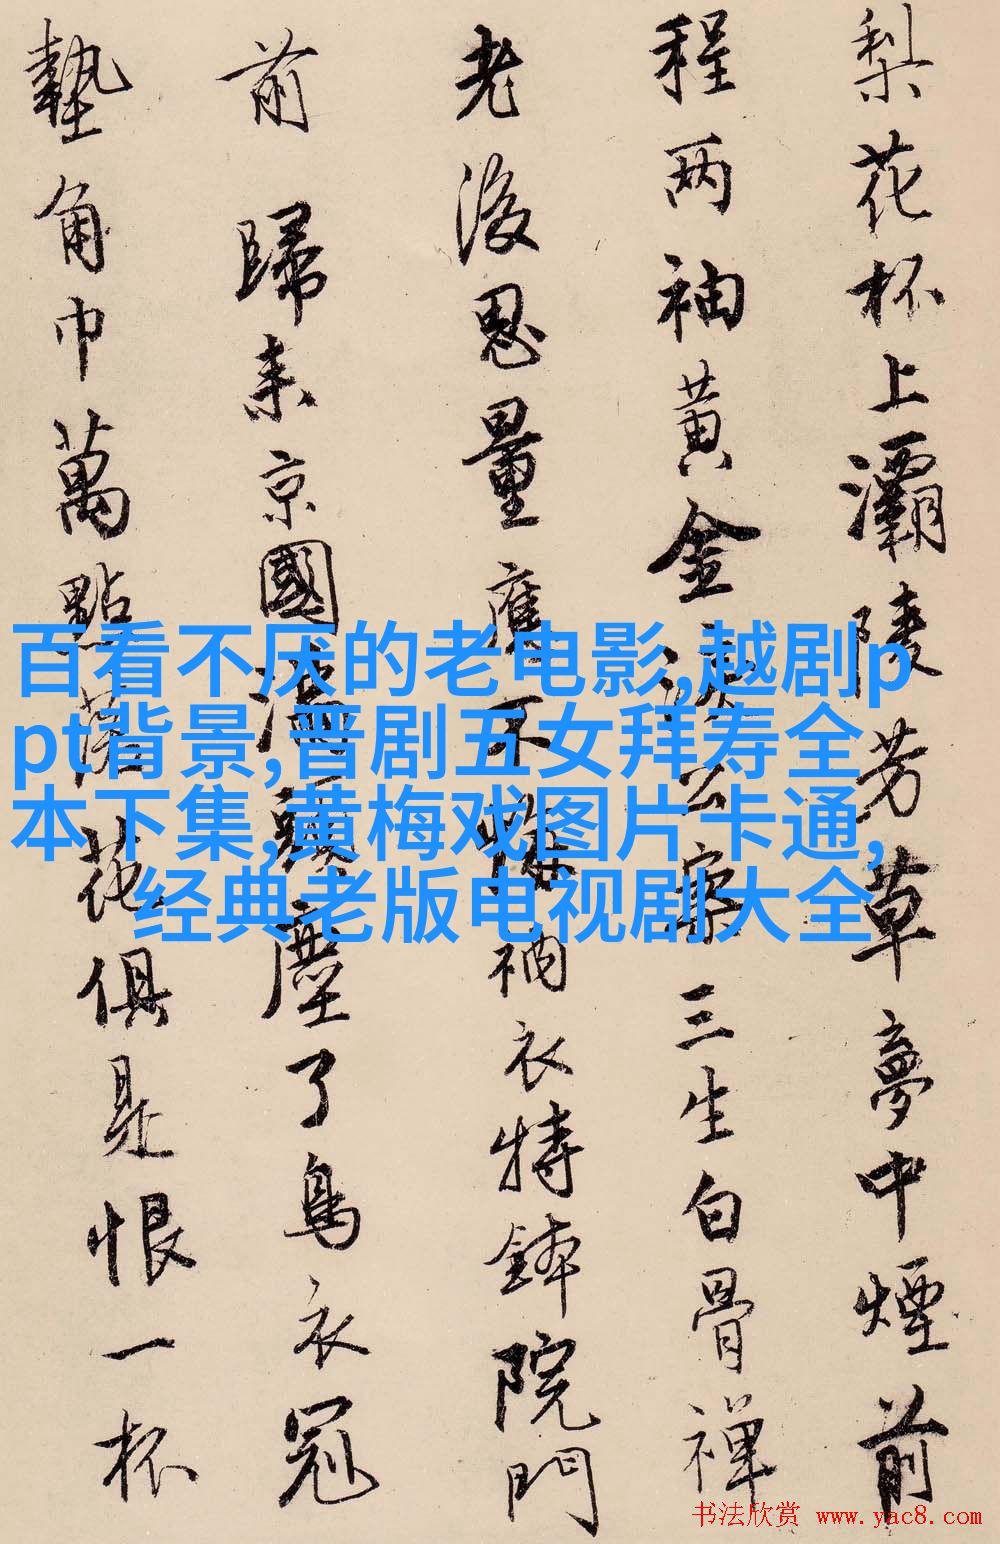 梨花杯上灞陵芳草夢中煙前
程两袖黄金淚公案三生白骨禅
老後思量應不悔衲衣持鉢院門
前歸来京國満頭塵了烏衣冠
墊角巾萬點落花俱是恨一杯
百看不厌的老电影,越剧p
pt背景,晋剧五女拜寿全
本下集,黄梅戏图片卡通,
经典老版电视剧大全
书法欣赏 www.yac8.com